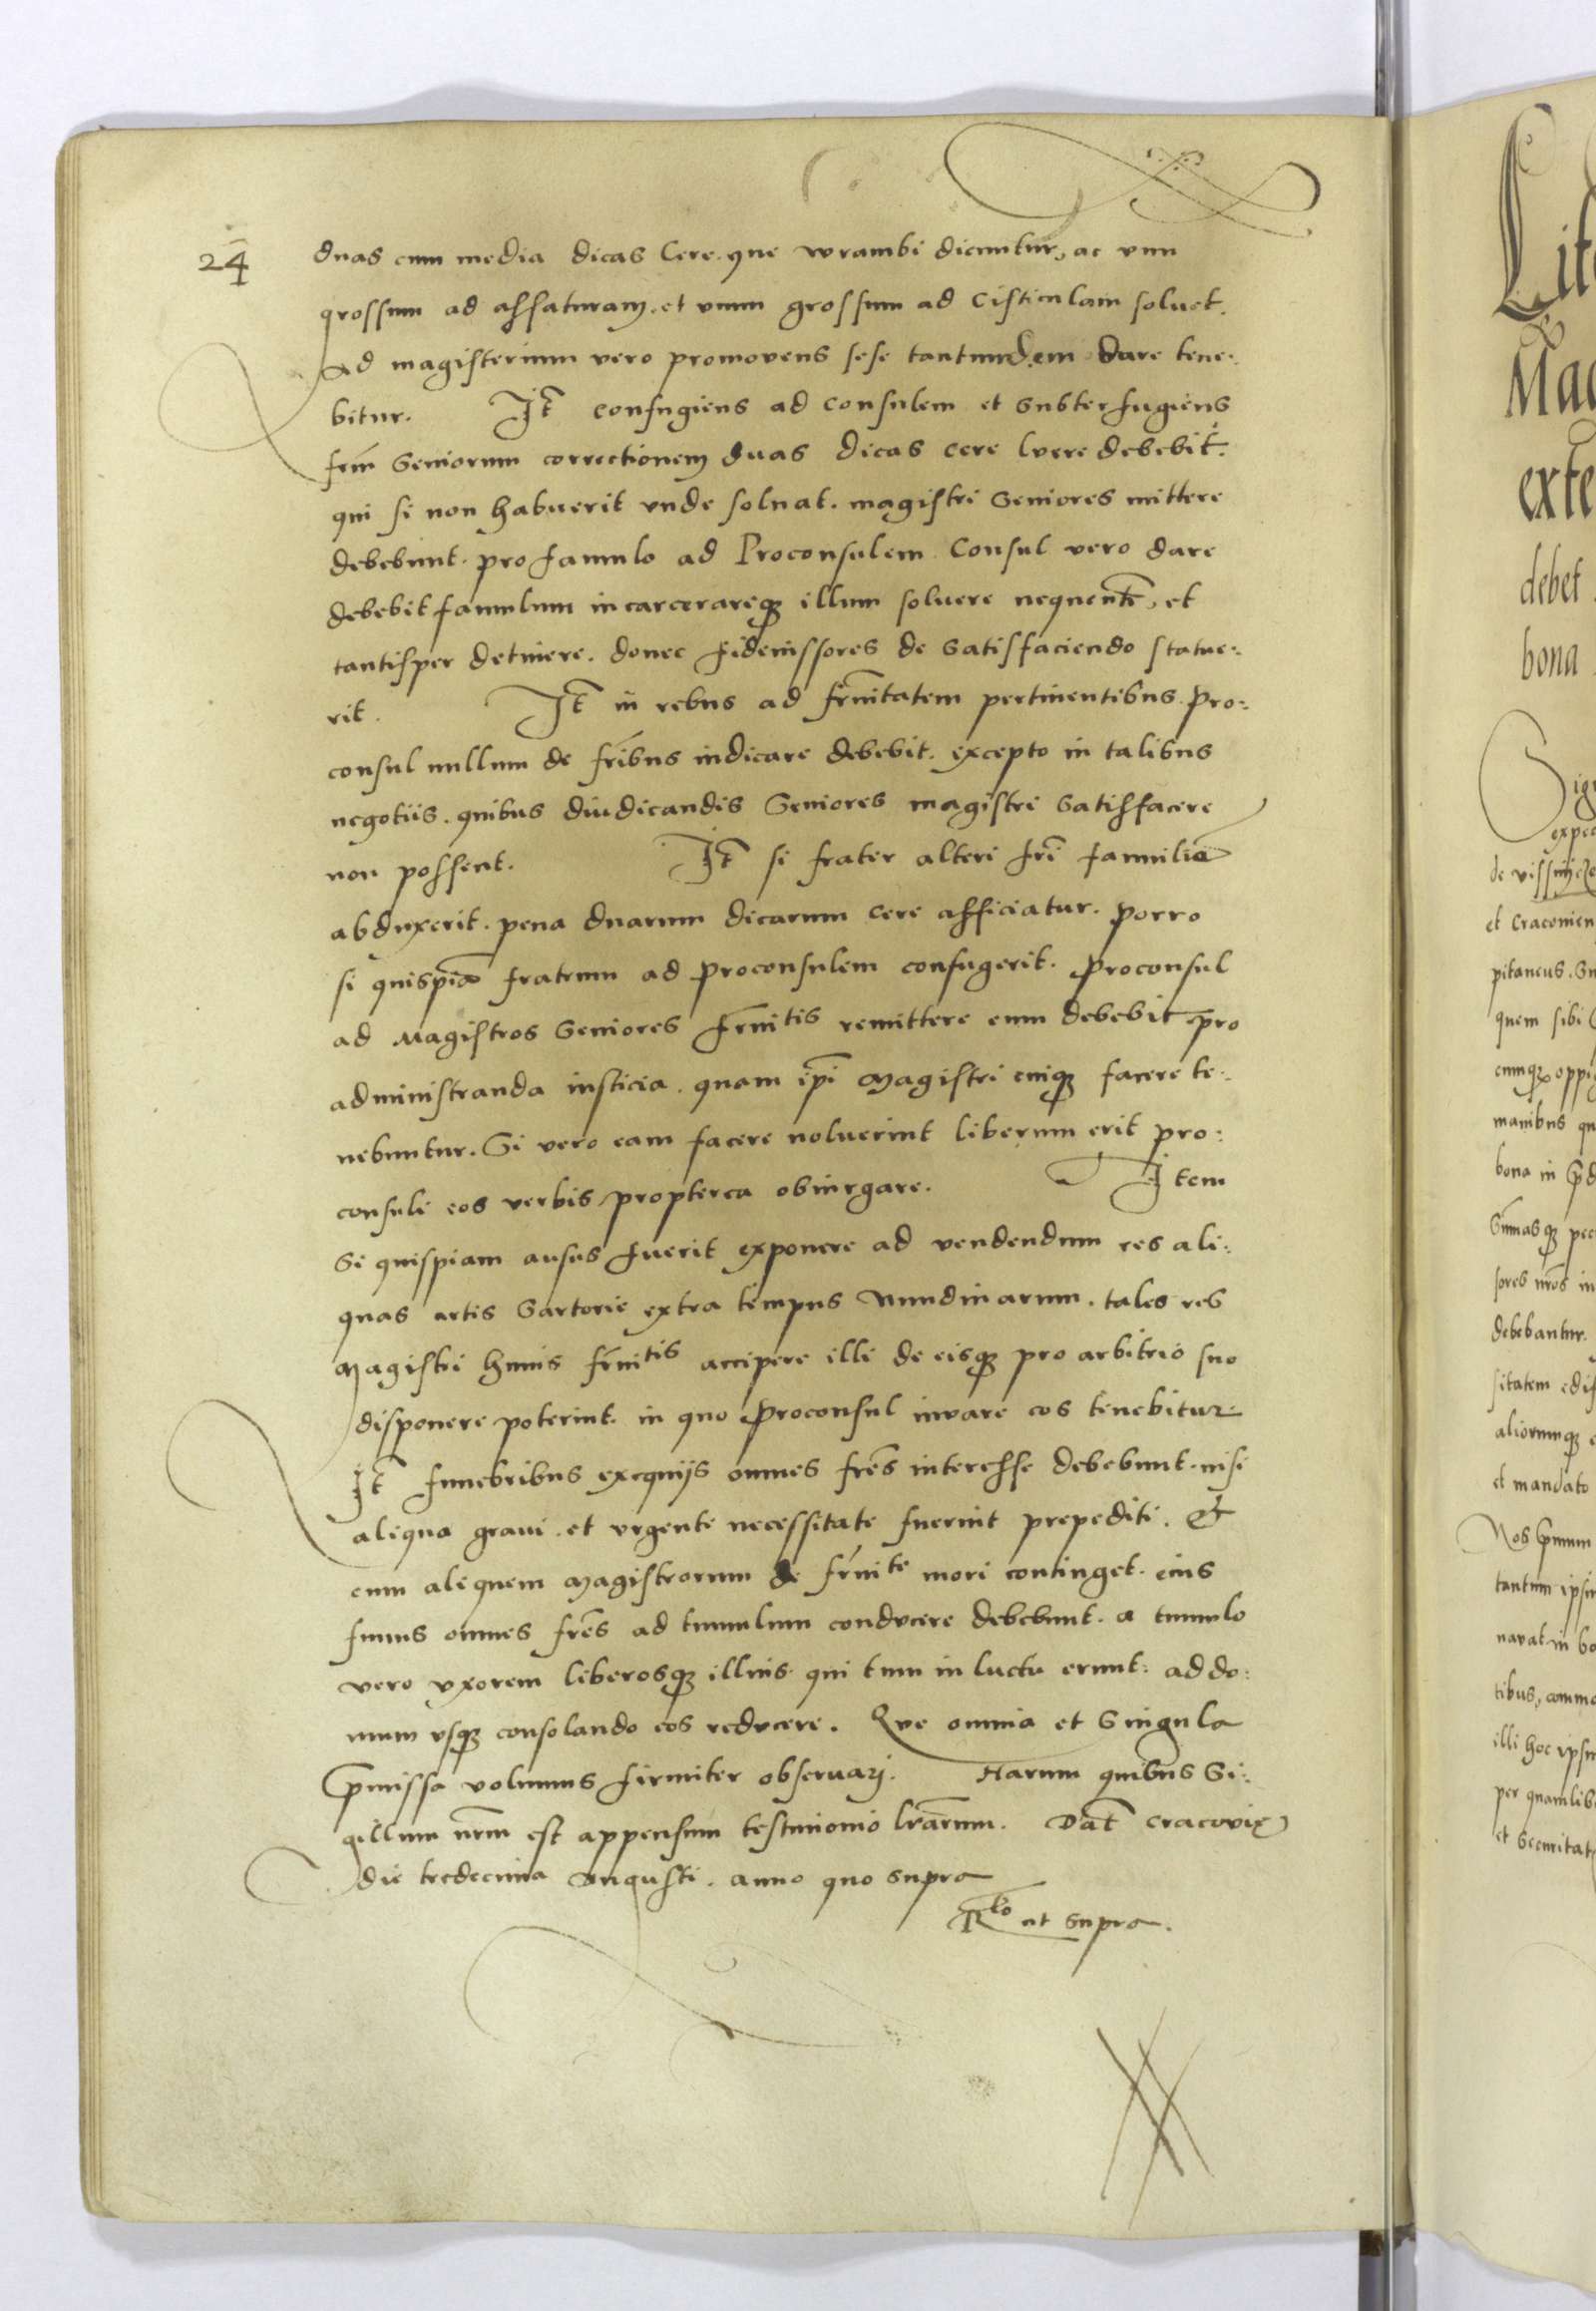 24
duas cum media dicas Cere. que wrambi dicuntur, ac vnu
grossum ad assaturam. et vnum grossum ad Cisticulam soluet.
Ad magisterium vero promovens sese tantundem dare tene:
bitur. Jt̄ confugiens ad consulem et subterfugiens
frm̄ Seniorum correctionem duas dicas cere luere debebit.
qui si non habuerit vnde soluat. magistri Seniores mittere
debebunt. pro famulo ad Proconsulem Consul vero dare
debebit famulum incarcerareqȝ illum soluere nequente͂, et
tantisper detinere. donec fideiussores de Satisfaciendo statue:
rit. Jt̄ in rebus ad frn̄itatem pertinentibus. Pro:
consul nullum de frībus iudicare debebit. excepto in talibus
negotiis. quibus diiudicandis Seniores magistri Satisfacere
non possent. Jt̄ si frater alteri frī famuliā
abduxerit. pena duarum dicarum cere afficiatur. Porro
si quispiā fratrum ad proconsulem confugerit. Proconsul
ad Magistros Seniores frn̄itis remittere eum debebit pro
administranda iusticia. quam ip̄i Magistri cuiqȝ facere te:
nebuntur. Si vero eam facere noluerint liberum erit pro:
consuli eos verbis propterea obiurgare. Item
Si quispiam ausus fuerit exponere ad vendendum res ali:
quas artis Sartorie extra tempus Nundinarum. tales res
Magistri huius frn̄itis accipere illi de eisqȝ pro arbitrio suo
disponere poterint. in quo Proconsul iuuare eos tenebitur
Jt̄ funebribus exequijs omnes frēs interesse debebunt. nisi
aliqua graui. et vrgente necessitate fuerint prepediti. Et
cum aliquem Magistrorum de frn̄ite mori continget. eius
funus omnes frēs ad tumulum conducere debebunt. a tumulo
vero vxorem liberosqȝ illius. qui tum in luctu erunt: ad do:
mum vsqȝ consolando eos reducere. Que omnia et Singula
p̄missa volumus firmiter obseruari. Harum quibus Si:
gillum nr̄m est appensum testimonio lr̄arum. Dat̄ Cracovie
die tredecima Augusti. anno quo supra
Rlo ut supra.
Lit
Mag
exte
debet
bona
Sig
exped
de
et Cracouien
pitaneus. Sn
quem sibi
cumqȝ oppi
manibus qu
bona in p̄d
Sūmasqȝ pec
sores nr̄os in
debebantur.
sitatem edif
aliorumqȝ
et mandato
Nos
tantum ipsi
navat in bo
tibus, commo
illi hoc ipsu
per quamlib
et Securitat